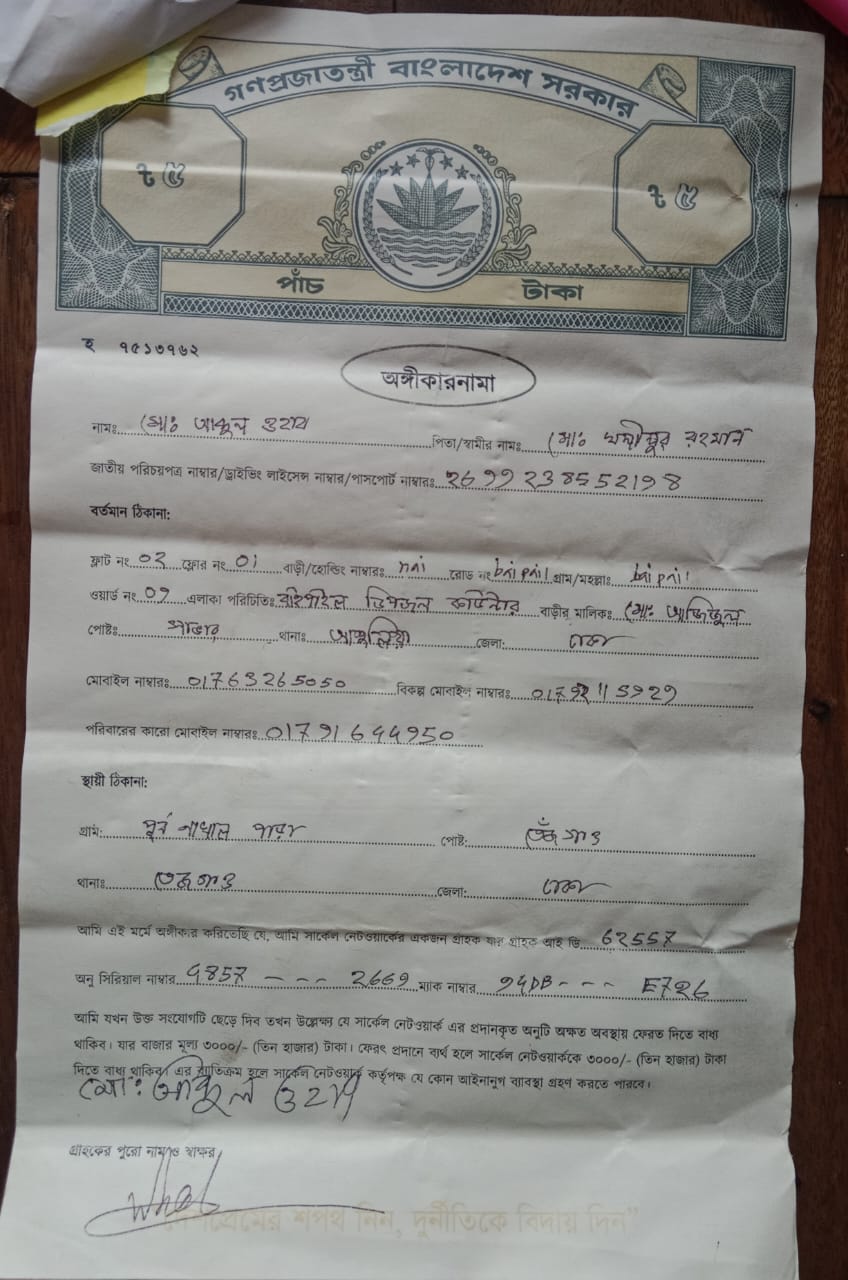 গণপ্রজাতন্ত্রী বাংলাদেশ সরকার
৳ ৫ ৳ ৫
পাঁচ টাকা
হ ৭৫১৩৭৬২
অঙ্গীকারনামা
নামঃ মোঃ আব্দুল ওহাব পিতা/স্বামীর নামঃ মোঃ রহমান
জাতীয় পরিচয়পত্র নাম্বার/ড্রাইভিং লাইসেন্স নাম্বার/পাসপোর্ট নাম্বারঃ
বর্তমান ঠিকানা:
ফ্লাট নং 02 ফ্লোর নং 01 বাড়ী/হোল্ডিং নাম্বারঃ nai রোড নং baipail গ্রাম/মহল্লাঃ baipail
ওয়ার্ড নং 09 এলাকা পরিচিতিঃ বাইপাইল বাড়ীর মালিকঃ মোঃ
পোষ্টঃ সাভার থানাঃ আশুলিয়া জেলা: ঢাকা
মোবাইল নাম্বারঃ 01763265050 বিকল্প মোবাইল নাম্বারঃ
পরিবারের কারো মোবাইল নাম্বারঃ 01791644950
স্থায়ী ঠিকানা:
গ্রাম: পূর্ব নাখাল পাড়া পোষ্ট: তেঁজগাও
থানাঃ তেজগাও জেলা: ঢাকা
আমি এই মর্মে অঙ্গীকার করিতেছি যে, আমি সার্কেল নেটওয়ার্কের একজন গ্রাহক যার গ্রাহক আই ডি 62557
অনু সিরিয়াল নাম্বার 4857 --- 2669 ম্যাক নাম্বার 94DB --- E726
আমি যখন উক্ত সংযোগটি ছেড়ে দিব তখন উল্লেক্ষ্য যে সার্কেল নেটওয়ার্ক এর প্রদানকৃত অনুটি অক্ষত অবস্থায় ফেরত দিতে বাধ্য
থাকিব। যার বাজার মূল্য ৩০০০/- (তিন হাজার) টাকা। ফেরৎ প্রদানে ব্যর্থ হলে সার্কেল নেটওয়ার্ককে ৩০০০/- (তিন হাজার) টাকা
দিতে বাধ্য থাকিব। এর ব্যতিক্রম হলে সার্কেল নেটওয়ার্ক কর্তৃপক্ষ যে কোন আইনানুগ ব্যাবস্থা গ্রহণ করতে পারবে।
মোঃ আব্দুল ওহাব
গ্রাহকের পুরো নাম ও স্বাক্ষর
"দেশপ্রেমের শপথ নিন, দুর্নীতিকে বিদায় দিন"